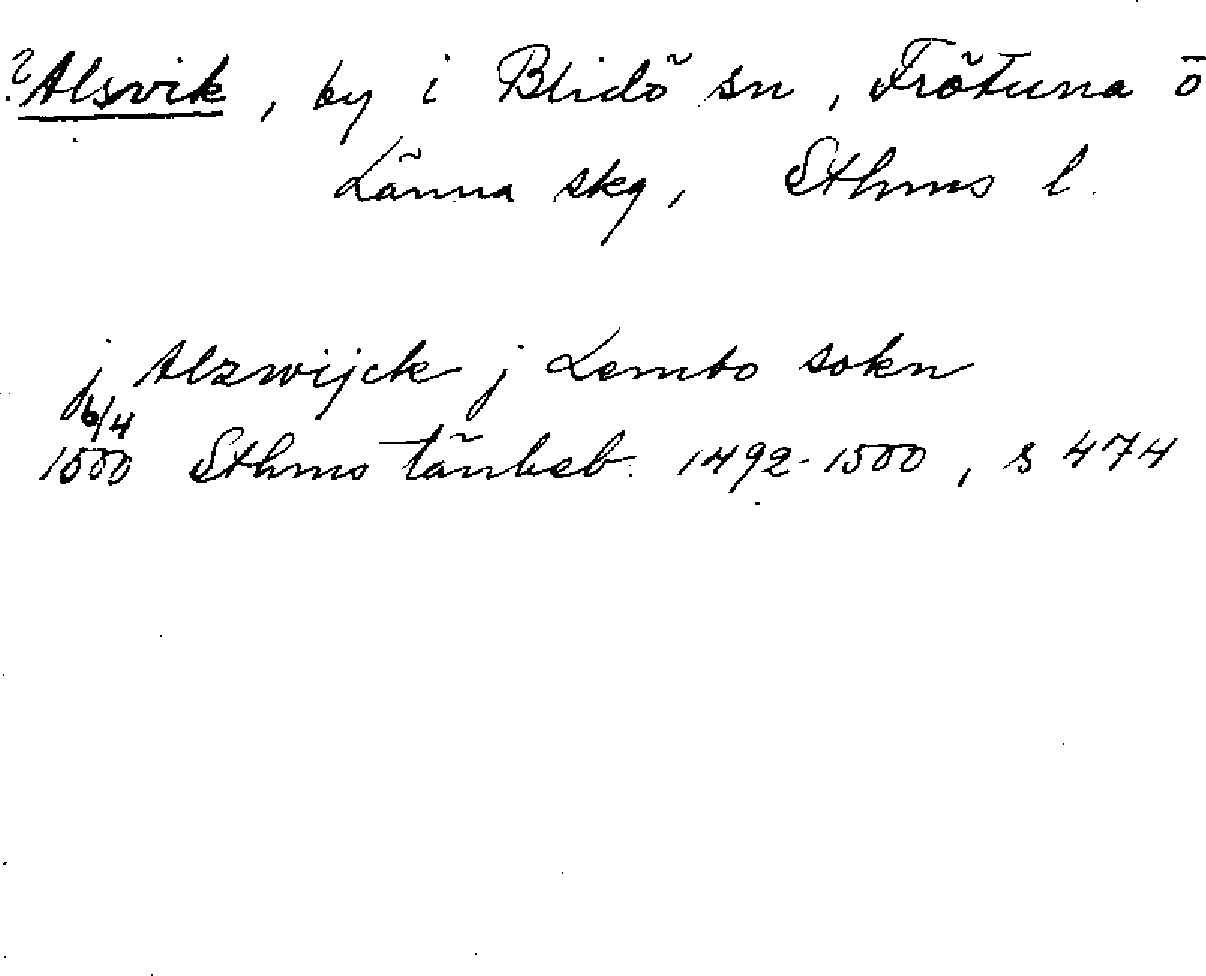 ?Alsvik, by i Blidö sn, Frötuna o
Länna skg, Sthms l.
j Alzwijck j Lembo sokn
6/4
1500 Sthms tänkeb. 1492-1500, s 474